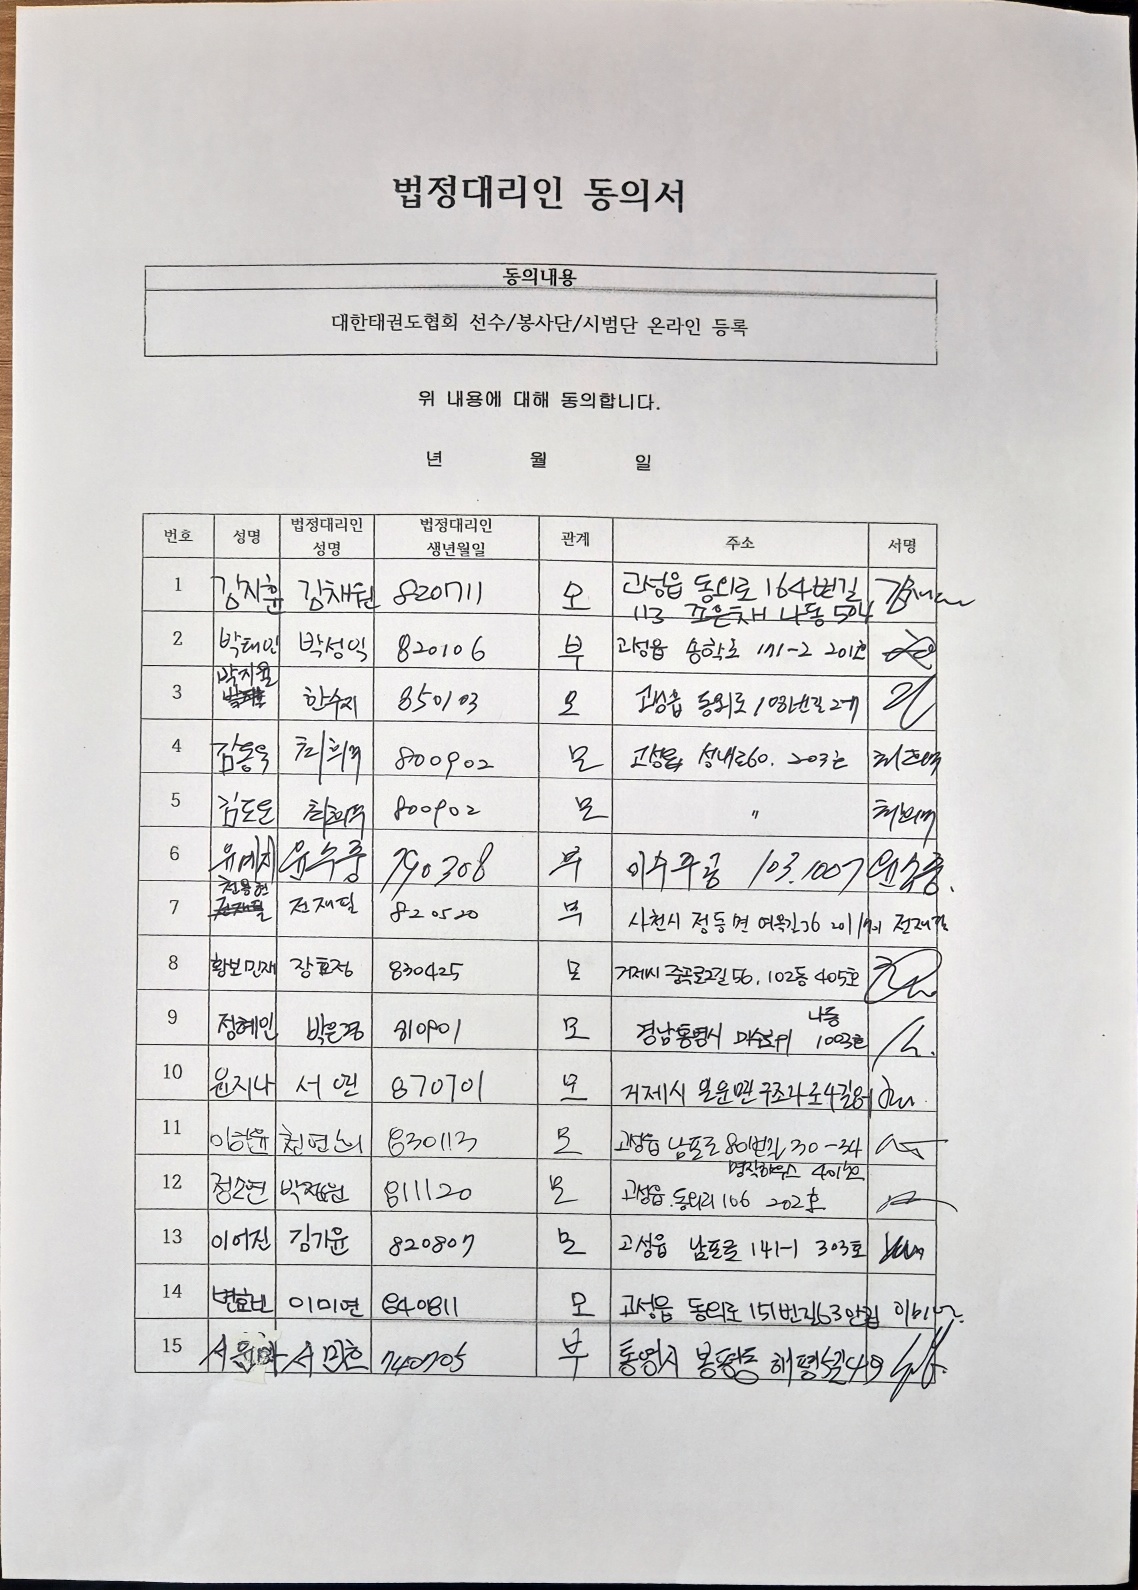 법정대리인 동의서
동의내용
대한태권도협회 선수/봉사단/시범단 온라인 등록
위 내용에 대해 동의합니다.
년 월 일
번호 성명 법정대리인 성명 법정대리인 생년월일 관계 주소 서명
1 강지훈 김채원 820711 모 고성읍 동외로 164번길
113 나동 504
2 박태민 박성익 820106 부 고성읍 송학로 171-2 201호
3 박지율 한수지 850103 모 고성읍 동외로 108번길
4 김동욱 최희주 800902 모 고성읍 성내로60. 203호
5 김도은 최희주 800902 모 〃
6 유예지 윤수중 790308 부 이수주공 103.1007 윤수중.
7 전용현 전재필 820520 부 사천시 정동면 여옥길36 전재필
8 황보민재 장효정 830425 모 거제시 중곡로2길 56, 102동 405호
9 정혜인 박은경 810901 모 경남통영시 나동
1003호
10 윤지나 서연 870701 모 거제시 일운면 구조라로4길
11 이하윤 830113 모 고성읍 남포로 80번길 30-34
401호
12 정소연 박정원 811120 모 고성읍 동외리 106 202호
13 이어진 김가윤 820807 모 고성읍 남포로 141-1 303호
14 변효빈 이미연 840811 모 고성읍 동외로 151번길63 이미연
15 서윤하 서민호 740705 부 통영시 봉평동 해평5길49